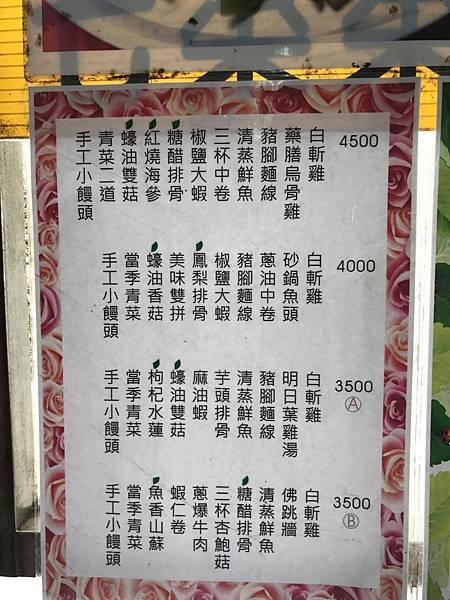 4500
白斬雞
藥膳烏骨雞
豬腳麵線
清蒸鮮魚
三杯中卷
椒鹽大蝦
糖醋排骨
紅燒海參
蠔油雙菇
青菜二道
手工小饅頭
4000
白斬雞
砂鍋魚頭
蔥油中卷
豬腳麵線
椒鹽大蝦
鳳梨排骨
美味雙拼
蠔油香菇
當季青菜
手工小饅頭
3500
A
白斬雞
明日葉雞湯
豬腳麵線
清蒸鮮魚
芋頭排骨
麻油蝦
蠔油雙菇
枸杞水蓮
當季青菜
手工小饅頭
3500
B
白斬雞
佛跳牆
清蒸鮮魚
糖醋排骨
三杯杏鮑菇
蔥爆牛肉
蝦仁卷
魚香山蘇
當季青菜
手工小饅頭